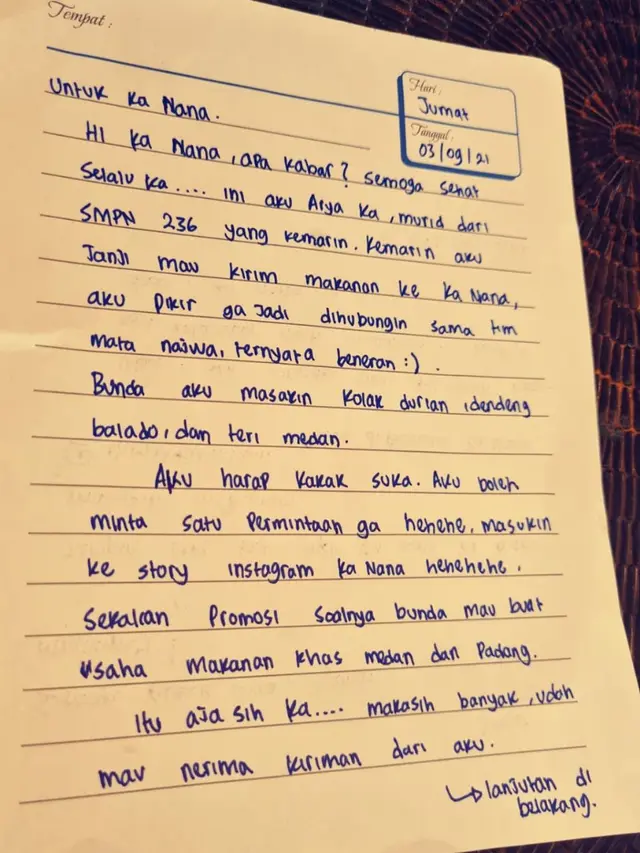 Tempat :
Hari :
Jumat
Tanggal :
03/09/21
Untuk Ka Nana.
HI Ka Nana, apa kabar? semoga sehat
selalu ka.... ini aku Arya ka, murid dari
SMPN 236 yang kemarin. Kemarin aku
Janji mau kirim makanan ke ka Nana,
aku pikir ga Jadi dihubungin sama tim
mata najwa, ternyata beneran :).
Bunda aku masakin kolak durian, dendeng
balado, dan teri medan.
Aku harap kakak suka. Aku boleh
minta satu permintaan ga hehehe, masukin
ke story instagram ka Nana hehehehe.
Sekalian Promosi soalnya bunda mau buat
usaha makanan khas medan dan Padang.
itu aja sih ka.... makasih banyak, udah
mau nerima kiriman dari aku.
↳ lanjutan di
belakang.